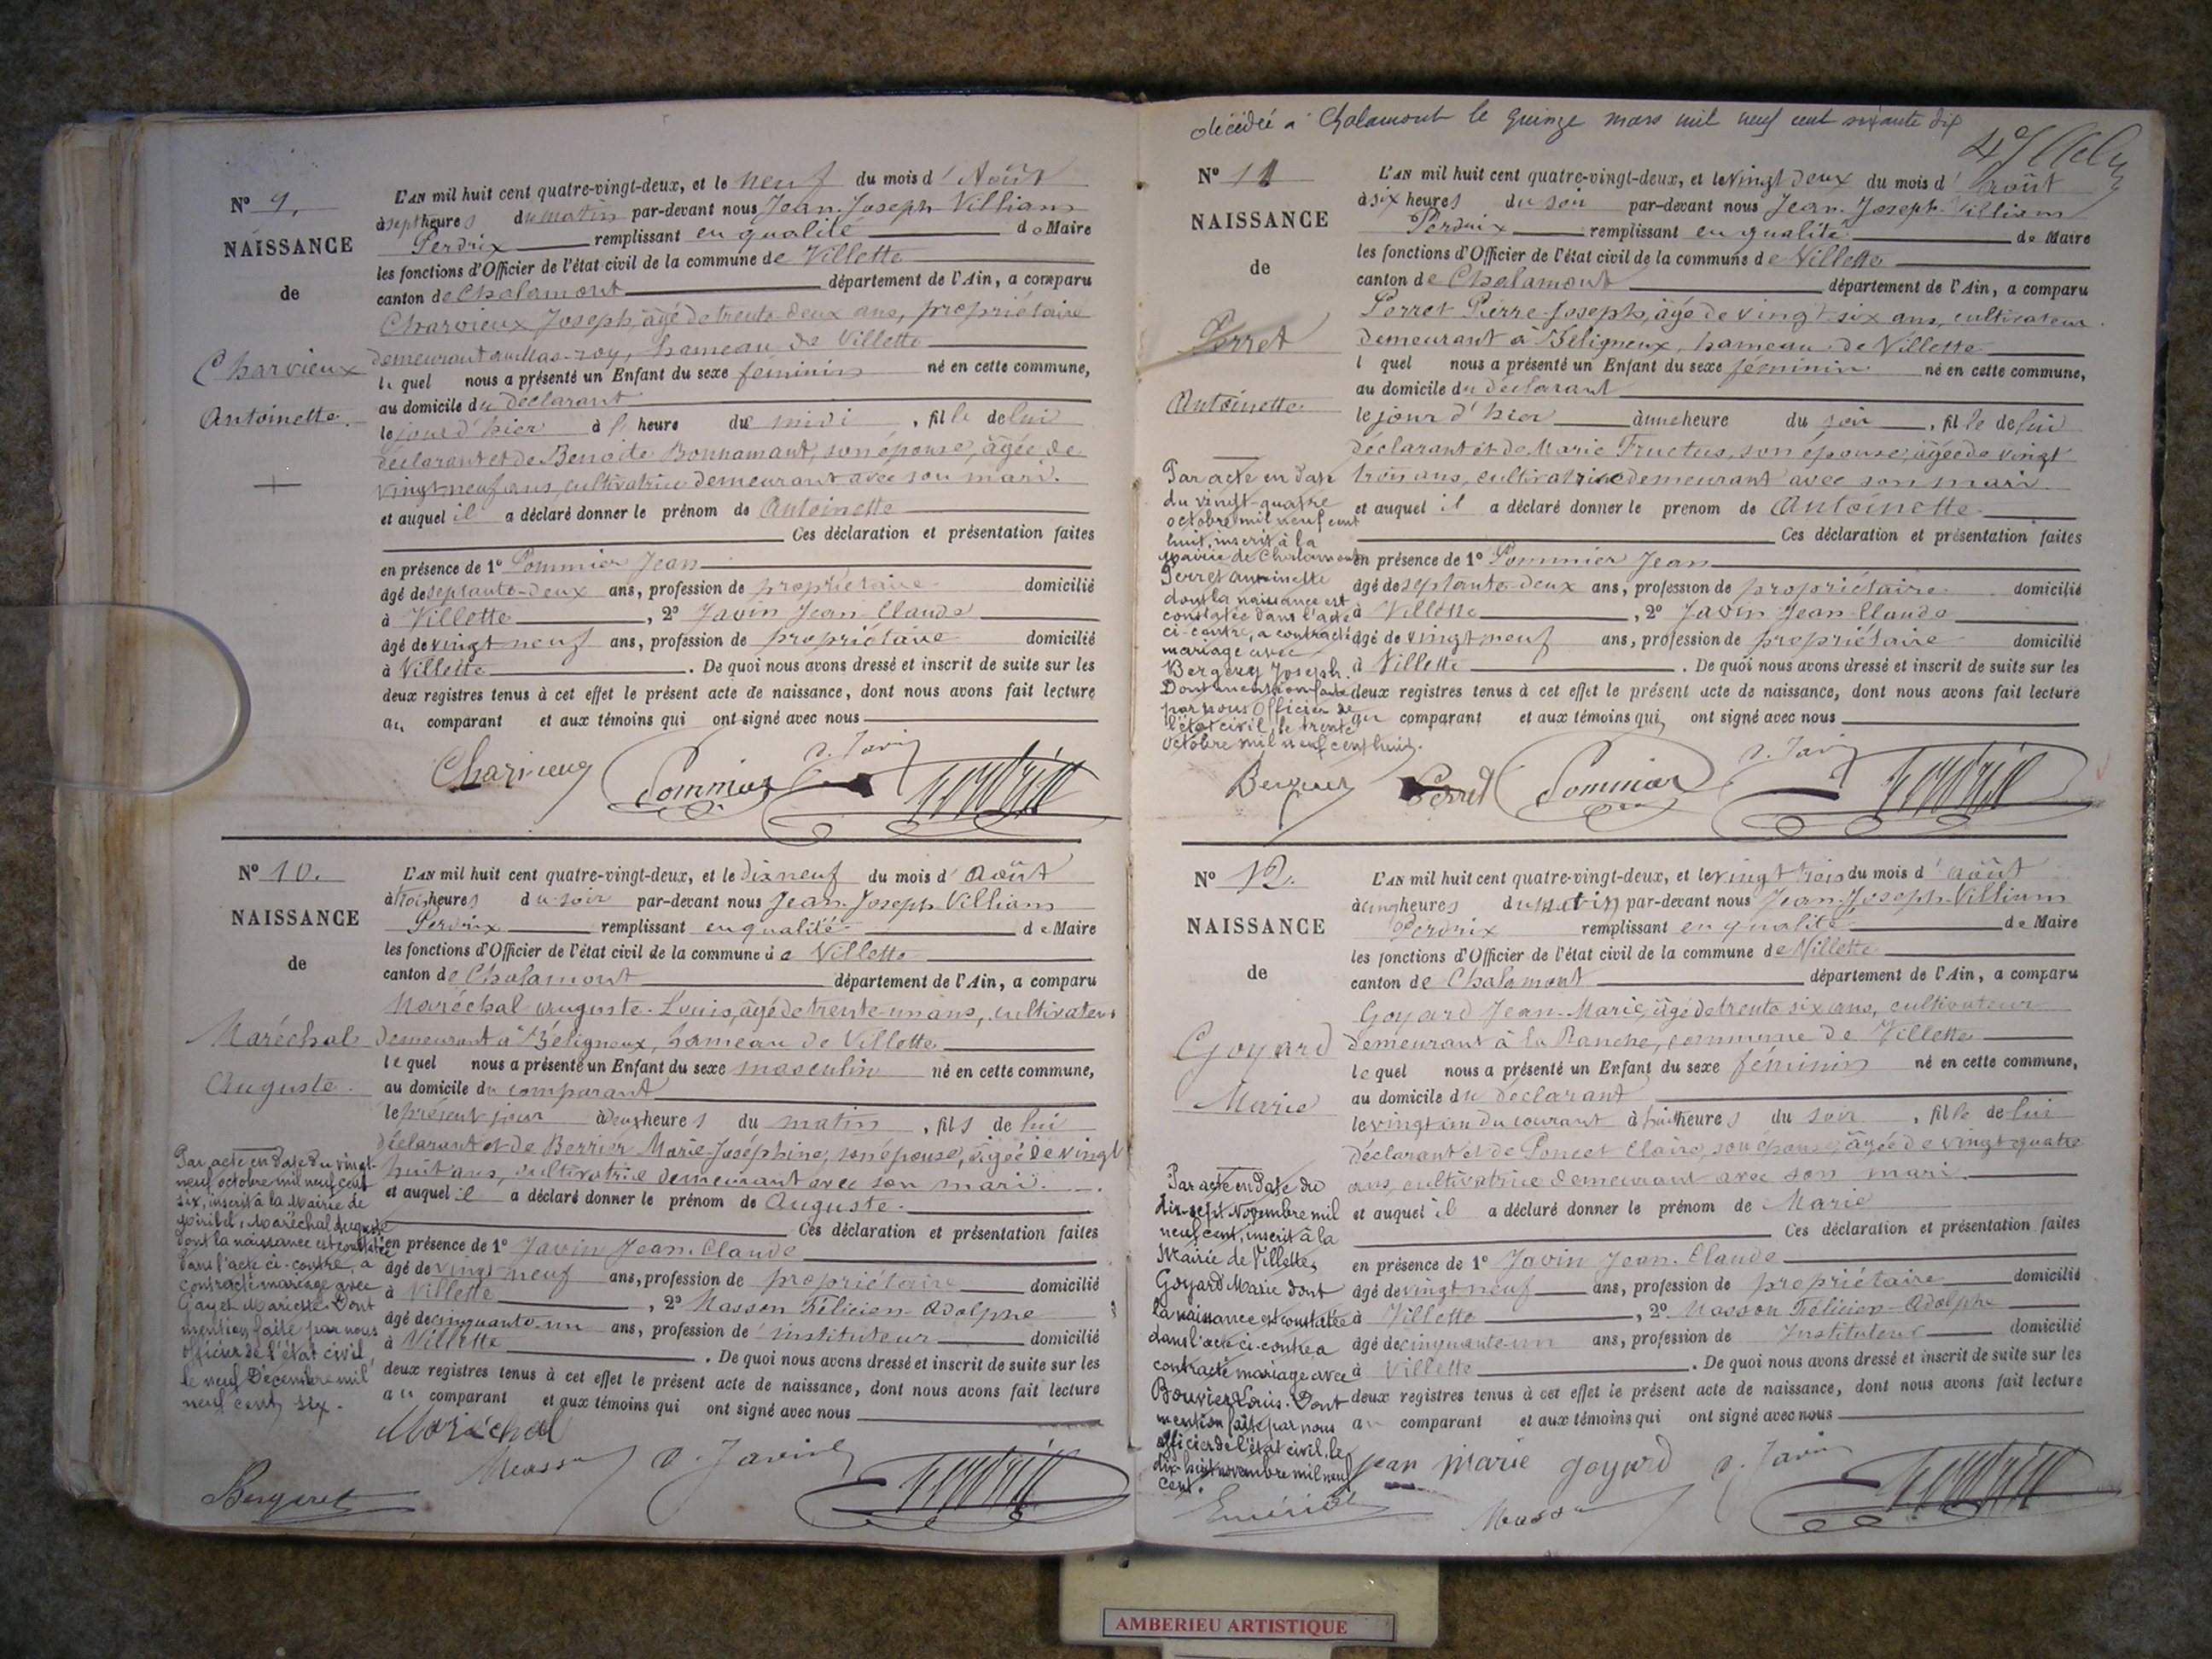 Nº 9.
NAISSANCE
de
Charvieux
Antoinette.
L'AN mil huit cent quatre-vingt-deux, et le neuf du mois d'Août
à sept heures du matin par-devant nous Jean-Joseph Villiam
Perdrix remplissant en qualité de Maire
les fonctions d'Officier de l'état civil de la commune de Villette
canton de Chalamont département de l'Ain, a comparu
Charvieux Joseph, âgé de trente-deux ans, propriétaire
demeurant au Mas-roy, hameau de Villette
lequel nous a présenté un Enfant du sexe féminin né en cette commune,
au domicile du déclarant
le jour d'hier à heure de midi, fille de lui
déclarant et de Benoite Bonnamant, son épouse, âgée de
vingt neuf ans, cultivatrice demeurant avec son mari.
et auquel il a déclaré donner le prénom de Antoinette
Ces déclaration et présentation faites
en présence de 1º Pommier Jean
âgé de septante-deux ans, profession de propriétaire domicilié
à Villette, 2º Javin Jean Claude
âgé de vingt neuf ans, profession de propriétaire domicilié
à Villette. De quoi nous avons dressé et inscrit de suite sur les
deux registres tenus à cet effet le présent acte de naissance, dont nous avons fait lecture
au comparant et aux témoins qui ont signé avec nous
Charvieux Pommier C. Javin Perdrix
Nº 10.
NAISSANCE
de
Maréchal
Auguste.
L'AN mil huit cent quatre-vingt-deux, et le dix neuf du mois d'Août
à trois heures du soir par-devant nous Jean-Joseph Villiam
Perdrix remplissant en qualité de Maire
les fonctions d'Officier de l'état civil de la commune de Villette
canton de Chalamont département de l'Ain, a comparu
Maréchal Auguste-Louis, âgé de trente-un ans, cultivateur
demeurant à Béligneux, hameau de Villette
lequel nous a présenté un Enfant du sexe masculin né en cette commune,
au domicile du comparant
le présent jour à deux heures du matin, fils de lui
déclarant et de Berrier Marie-Joséphine, son épouse, âgée de vingt
huit ans, cultivatrice demeurant avec son mari.
et auquel il a déclaré donner le prénom de Auguste.
Ces déclaration et présentation faites
en présence de 1º Javin Jean-Claude
âgé de vingt neuf ans, profession de propriétaire domicilié
à Villette, 2º Masson Félicien-Adolphe
âgé de cinquante-un ans, profession de instituteur domicilié
à Villette. De quoi nous avons dressé et inscrit de suite sur les
deux registres tenus à cet effet le présent acte de naissance, dont nous avons fait lecture
au comparant et aux témoins qui ont signé avec nous
Par acte en date du vingt-
neuf octobre mil neuf cent
six, inscrit à la Mairie de
Miribel, Maréchal Auguste
dont la naissance est constatée
dans l'acte ci-contre, a
contracté mariage avec
Gayet Mariette. Dont
mention faite par nous
officier de l'état civil,
le neuf Décembre mil
neuf cent six.
Maréchal
Masson C. Javin Perdrix
Bergeret
décédée à Chalamont le quinze mars mil neuf cent soixante dix
Nº 11
NAISSANCE
de
Perret
Antoinette
L'AN mil huit cent quatre-vingt-deux, et le vingt deux du mois d'août
à six heures du soir par-devant nous Jean-Joseph Villiam
Perdrix remplissant en qualité de Maire
les fonctions d'Officier de l'état civil de la commune de Villette
canton de Chalamont département de l'Ain, a comparu
Perret Pierre-Joseph, âgé de vingt six ans, cultivateur
demeurant à Béligneux, hameau de Villette
lquel nous a présenté un Enfant du sexe féminin né en cette commune,
au domicile du déclarant
le jour d'hier à une heure du soir, fille de lui
déclarant et de Marie Fructus, son épouse, âgée de vingt
trois ans, cultivatrice demeurant avec son mari
et auquel il a déclaré donner le prénom de Antoinette
Ces déclaration et présentation faites
en présence de 1º Pommier Jean
âgé de septante-deux ans, profession de propriétaire domicilié
à Villette, 2º Javin Jean Claude
âgé de vingt neuf ans, profession de propriétaire domicilié
à Villette. De quoi nous avons dressé et inscrit de suite sur les
deux registres tenus à cet effet le présent acte de naissance, dont nous avons fait lecture
au comparant et aux témoins qui ont signé avec nous
Par acte en date
du vingt-quatre
octobre mil neuf cent
huit, inscrit à la
Mairie de Chalamont
Perret Antoinette
dont la naissance est
constatée dans l'acte
ci-contre, a contracté
mariage avec
Bergery Joseph.
Dont mention faite
par nous Officier de
l'état civil, le trente
octobre mil neuf cent huit.
Perret Pommier C. Javin Perdrix
Nº 12.
NAISSANCE
de
Goyard
Marie
L'AN mil huit cent quatre-vingt-deux, et le vingt trois du mois d'août
à cinq heures du matin par-devant nous Jean-Joseph Villiam
Perdrix remplissant en qualité de Maire
les fonctions d'Officier de l'état civil de la commune de Villette
canton de Chalamont département de l'Ain, a comparu
Goyard Jean-Marie, âgé de trente six ans, cultivateur
demeurant à la Ranche, commune de Villette
lequel nous a présenté un Enfant du sexe féminin né en cette commune,
au domicile du déclarant
le vingt un du courant à huit heures du soir, fille de lui
déclarant et de Poncet Claire, son épouse, âgée de vingt-quatre
ans, cultivatrice demeurant avec son mari.
et auquel il a déclaré donner le prénom de Marie
Ces déclaration et présentation faites
en présence de 1º Javin Jean-Claude
âgé de vingt neuf ans, profession de propriétaire domicilié
à Villette, 2º Masson Félicien-Adolphe
âgé de cinquante-un ans, profession de Instituteur domicilié
à Villette. De quoi nous avons dressé et inscrit de suite sur les
deux registres tenus à cet effet le présent acte de naissance, dont nous avons fait lecture
au comparant et aux témoins qui ont signé avec nous
Par acte en date du
dix-sept Novembre mil
neuf cent, inscrit à la
Mairie de Villette,
Goyard Marie dont
la naissance est constatée
dans l'acte ci-contre a
contracté mariage avec
Bouvier Louis. Dont
mention faite par nous
officier de l'état civil, le
dix-huit novembre mil neuf
cent.
jean marie goyard C. Javin
Masson Perdrix
AMBERIEU ARTISTIQUE